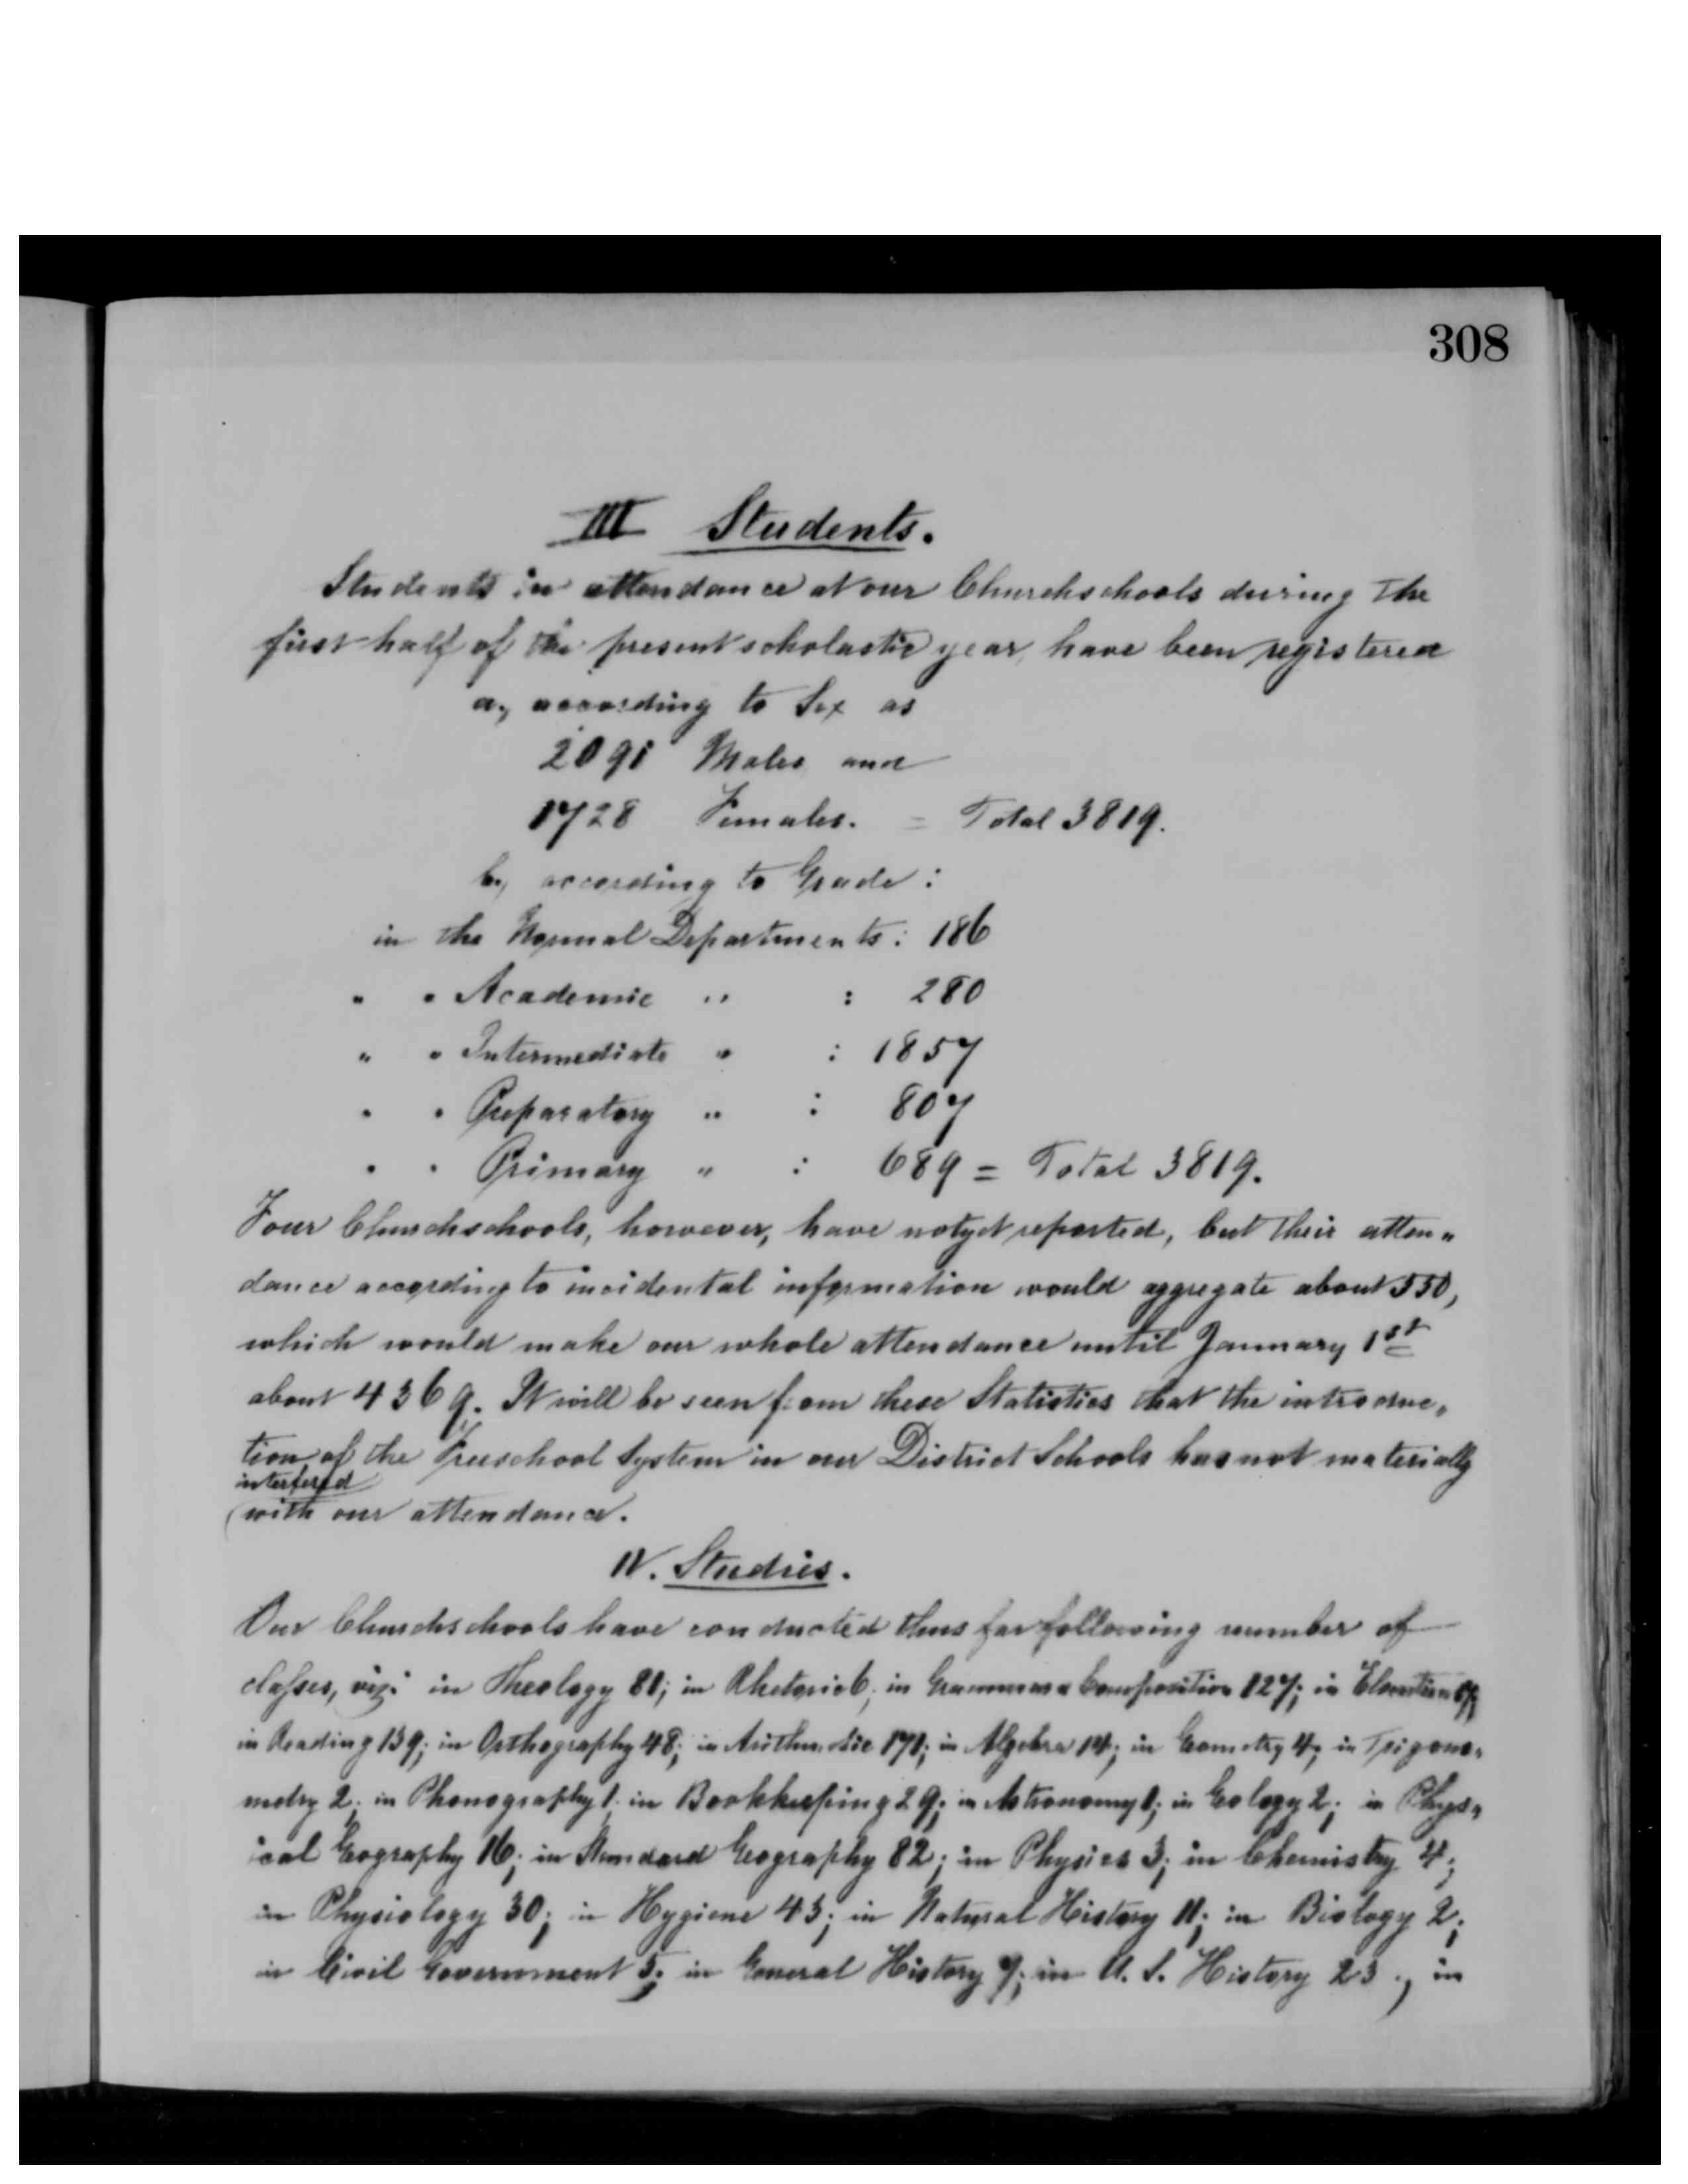 308
III Students.
Students in attendance at our Churchschools during the
first half of the present scholastic year, have been registered
a, according to Sex as
2091 Males and
1728 Females. = Total 3819.
b, according to Grade :
in the Normal Departments : 186
" " Academic " : 280
" " Intermediate " : 1857
" " Preparatory " : 807
" " Primary " : 689 = Total 3819.
Four Churchschools, however, have not yet reported, but their atten„
dance according to incidental information would aggregate about 550,
which would make our whole attendance until January 1st
about 4369. It will be seen from these Statistics that the introduc„
tion of the Freeschool System in our District Schools has not materially
interfered
with our attendance.
IV. Studies.
Our Churchschools have conducted thus far following number of
classes, viz: in Theology 81; in Rhetoric 6; in Grammar & Composition 127; in Elocution
in Reading 139; in Orthography 48; in Arithmetic 171; in Algebra 14; in Geometry 4; in Trigono„
metry 2; in Phonography 1; in Bookkeeping 29; in Astronomy 1; in Geology 2; in Phys„
ical Geography 16; in Standard Geography 82; in Physics 3; in Chemistry 4;
in Physiology 30; in Hygiene 43; in Natural History 11; in Biology 2;
in Civil Government 5; in General History 9; in U. S. History 23 ; in